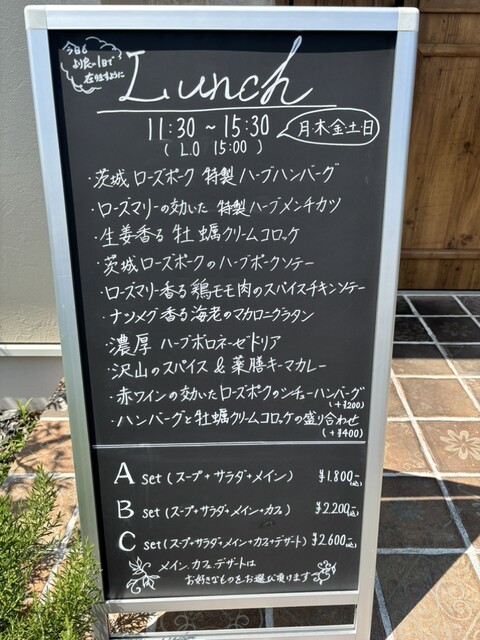 今日も
より良い1日で
在りますように
Lunch
11:30 ~ 15:30
月・木・金・土・日
( L.O 15:00 )
・茨城 ローズポーク 特製 ハーブハンバーグ
・ローズマリーの効いた 特製ハーブメンチカツ
・生姜香る 牡蠣クリームコロッケ
・茨城ローズポークのハーブポークソテー
・ローズマリー香る 鶏モモ肉のスパイスチキンソテー
・ナツメグ香る海老のマカロニグラタン
・濃厚 ハーブボロネーゼドリア
・沢山のスパイス & 薬膳キーマカレー
・赤ワインの効いたローズポークのシチューハンバーグ
(+¥200)
・ハンバーグと牡蠣クリームコロッケの盛り合わせ
(+¥400)
A set (スープ+サラダ+メイン) ¥1.800-(込)
B set (スープ+サラダ+メイン+カフェ) ¥2.200-(込)
C set (スープ+サラダ+メイン+カフェ+デザート) ¥2.600-(込)
メイン. カフェ. デザートは
お好きなものをお選び頂けます